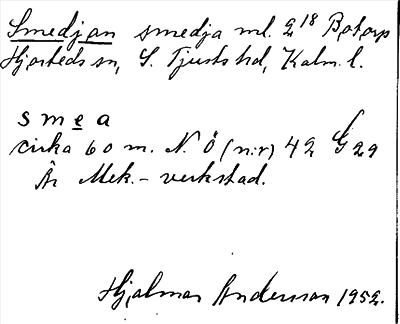 Smedjan smedja ml. 2¹⁸ Botorp
Hjorteds sn, S. Tjusts hd, Kalm. l.
smea
cirka 60 m. N. Ö (n:r) 42 G 29
Är Mek.- verkstad.
Hjalmar Andersson 1952.